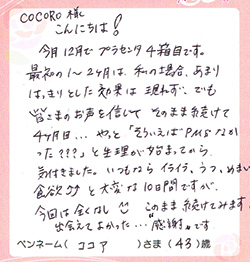 COCORO 様
こんにちは!
今月12月でプラセンタ4箱目です。
最初の1〜2ヶ月は 私の場合、あまり
はっきりとした効果は 現れず… でも
皆さまのお声を信じて そのまま続けて
4ヶ月目… やっと「そういえばPMSなか
った???」と生理が始まってから
気付きました。いつもなら イライラ、うつ、めまい
食欲 と大変な10日間ですが、
今回は全くなし このまま続けてみます。
出会えてよかった…"感謝"です
ペンネーム( ココア )さま (43)歳